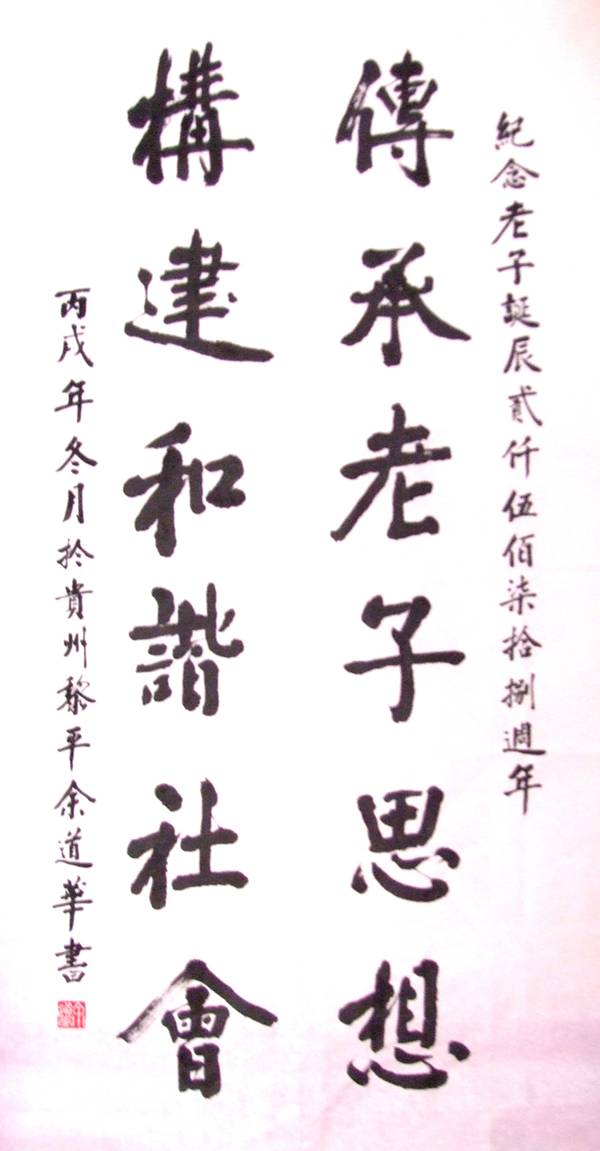 紀念老子誕辰貳仟伍佰柒拾捌週年
傳承老子思想
構建和諧社會
丙戌年冬月於貴州黎平余道華書